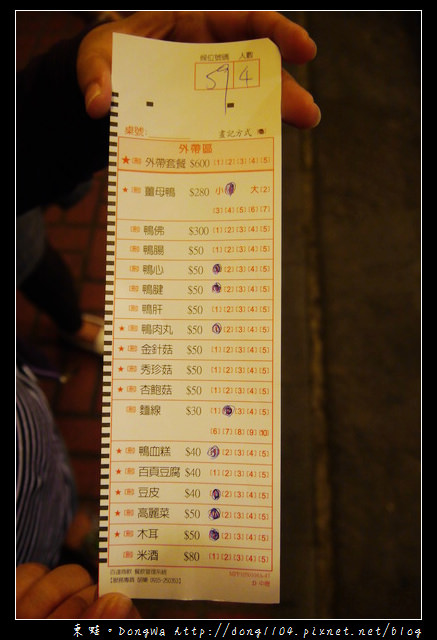 候位號碼 人數
59 4
桌號: 畫記方式
外帶區
★ 外帶套餐 $600 (1) (2) (3) (4) (5)
★ 薑母鴨 $280 小 大 (2)
(3) (4) (5) (6) (7)
鴨佛 $300 (1) (2) (3) (4) (5)
鴨腸 $50 (1) (2) (3) (4) (5)
鴨心 $50 (2) (3) (4) (5)
鴨腱 $50 (2) (3) (4) (5)
鴨肝 $50 (1) (2) (3) (4) (5)
★ 鴨肉丸 $50 (2) (3) (4) (5)
★ 金針菇 $50 (1) (2) (3) (4) (5)
★ 秀珍菇 $50 (1) (2) (3) (4) (5)
★ 杏鮑菇 $50 (1) (2) (3) (4) (5)
麵線 $30 (1) (3) (4) (5)
(6) (7) (8) (9) (10)
★ 鴨血糕 $40 (2) (3) (4) (5)
★ 百頁豆腐 $40 (1) (2) (3) (4) (5)
★ 豆皮 $40 (2) (3) (4) (5)
★ 高麗菜 $50 (2) (3) (4) (5)
★ 木耳 $50 (2) (3) (4) (5)
米酒 $80 (1) (2) (3) (4) (5)
東蛙。DongWa http://dong1104.pixnet.net/blog